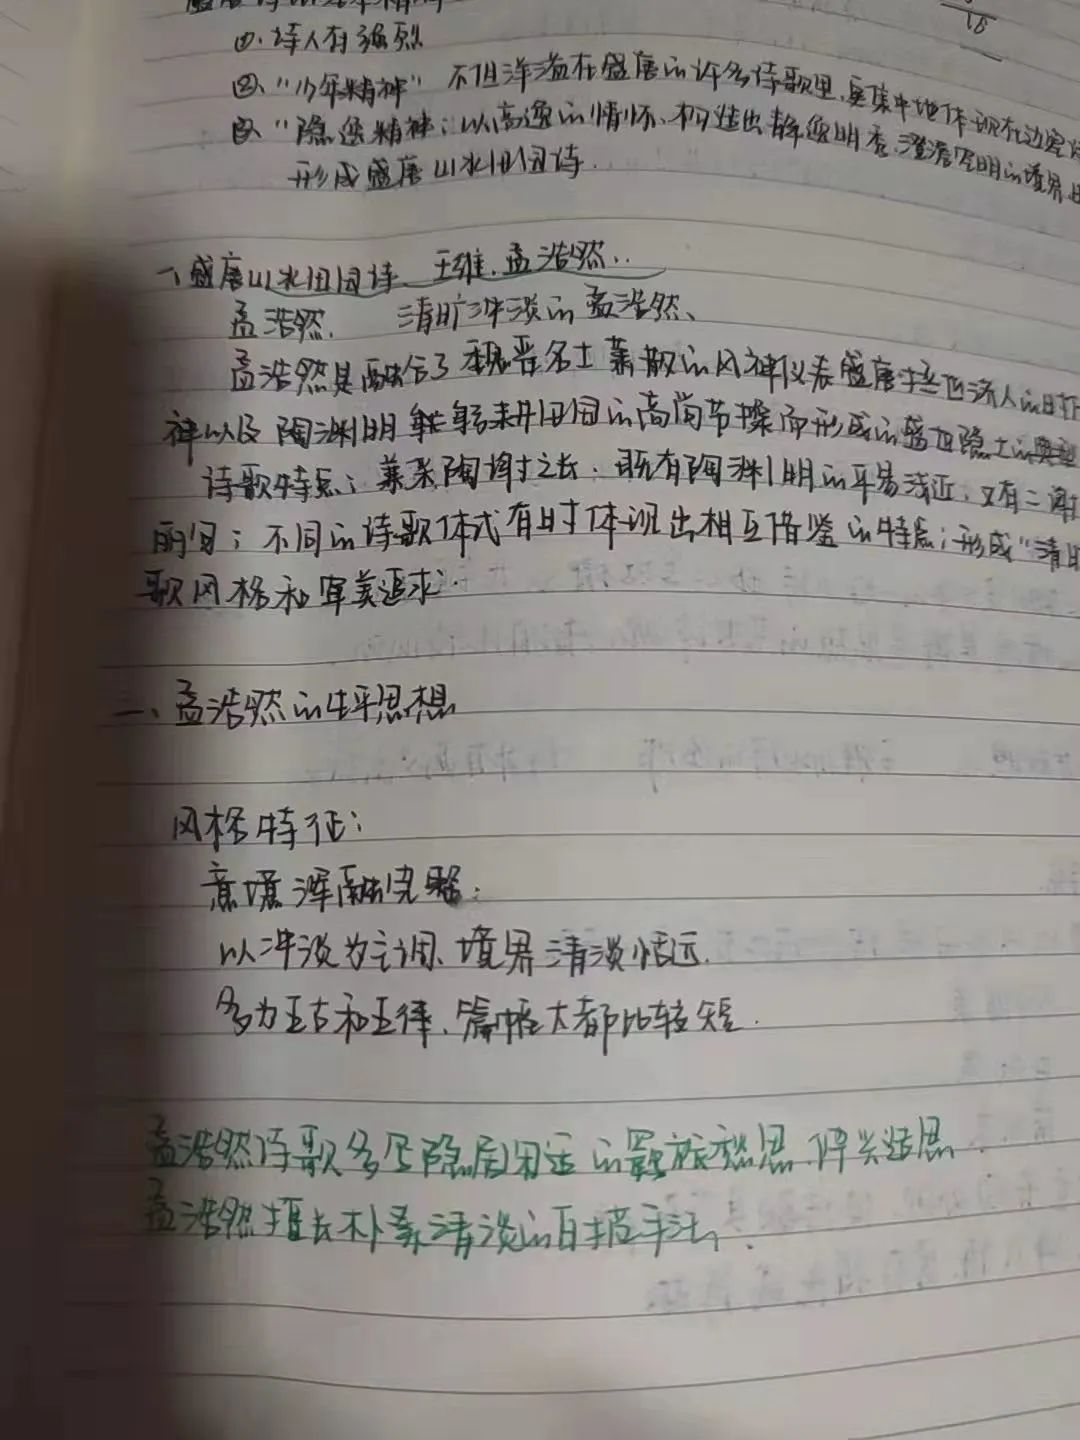 盛唐诗的基本精神
18
①、诗人有强烈
②、"少年精神" 不但洋溢在盛唐的许多诗歌里,更集中地体现在边塞
③、"隐逸精神:以高逸的情怀、构造出静逸明秀、澄澹空明的境界
形成盛唐山水田园诗.
一、盛唐山水田园诗 王维.孟浩然..
孟浩然. 清旷冲淡的孟浩然、
孟浩然是融合了魏晋名士萧散的风神仪表盛唐 人的
神以及陶渊明躬耕田园的高尚节操而形成的盛世隐士的典型
诗歌特点:兼采陶谢之长:既有陶渊明的平易浅近;又有二谢
丽句;不同的诗歌体式有时体现出相互借鉴的特点;形成"清
歌风格和审美追求.
二、孟浩然的生平思想
风格特征:
意境浑融完整;
以冲淡为主调、境界清淡恬远.
多为五古和五律、篇幅大都比较短.
孟浩然诗歌多写隐居 的羁旅愁思、伫兴造思.
孟浩然擅长朴素清淡的白描手法.